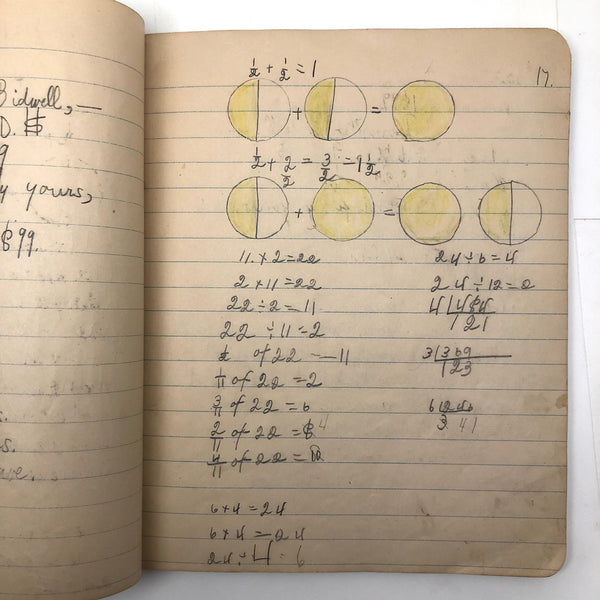 Bidwell,—
D. $
9
y yours,
$99.
s.
ave.
17.
1/2 + 1/2 = 1
+ =
1/2 + 2/2 = 3/2 = 1 1/2
+ =
11 × 2 = 22
2 × 11 = 22
22 ÷ 2 = 11
22 ÷ 11 = 2
1/2 of 22 — 11
1/11 of 22 = 2
3/11 of 22 = 6
2/11 of 22 = 4
4/11 of 22 =
6 × 4 = 24
6 × 4 = 24
24 ÷ 4 = 6
24 ÷ 6 = 4
24 ÷ 12 = 2
4 | 484
121
3 | 369
123
6 | 246
41